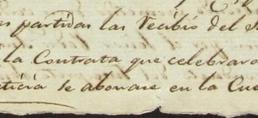 partidas las recibió del
la Contrata que celebraro
se abonase en la Cue